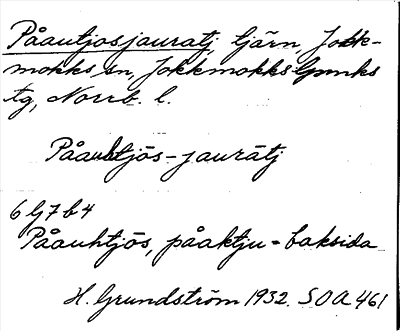 Påautjosjauratj, tjärn, Jokk-
mokks sn, Jokkmokks lpmks
tg, Norrb. l.
Påauhtjås-jauratj
6 lj 7 b 4
Påauhtjås, påaktju = baksida
H. Grundström 1932. SOA 461